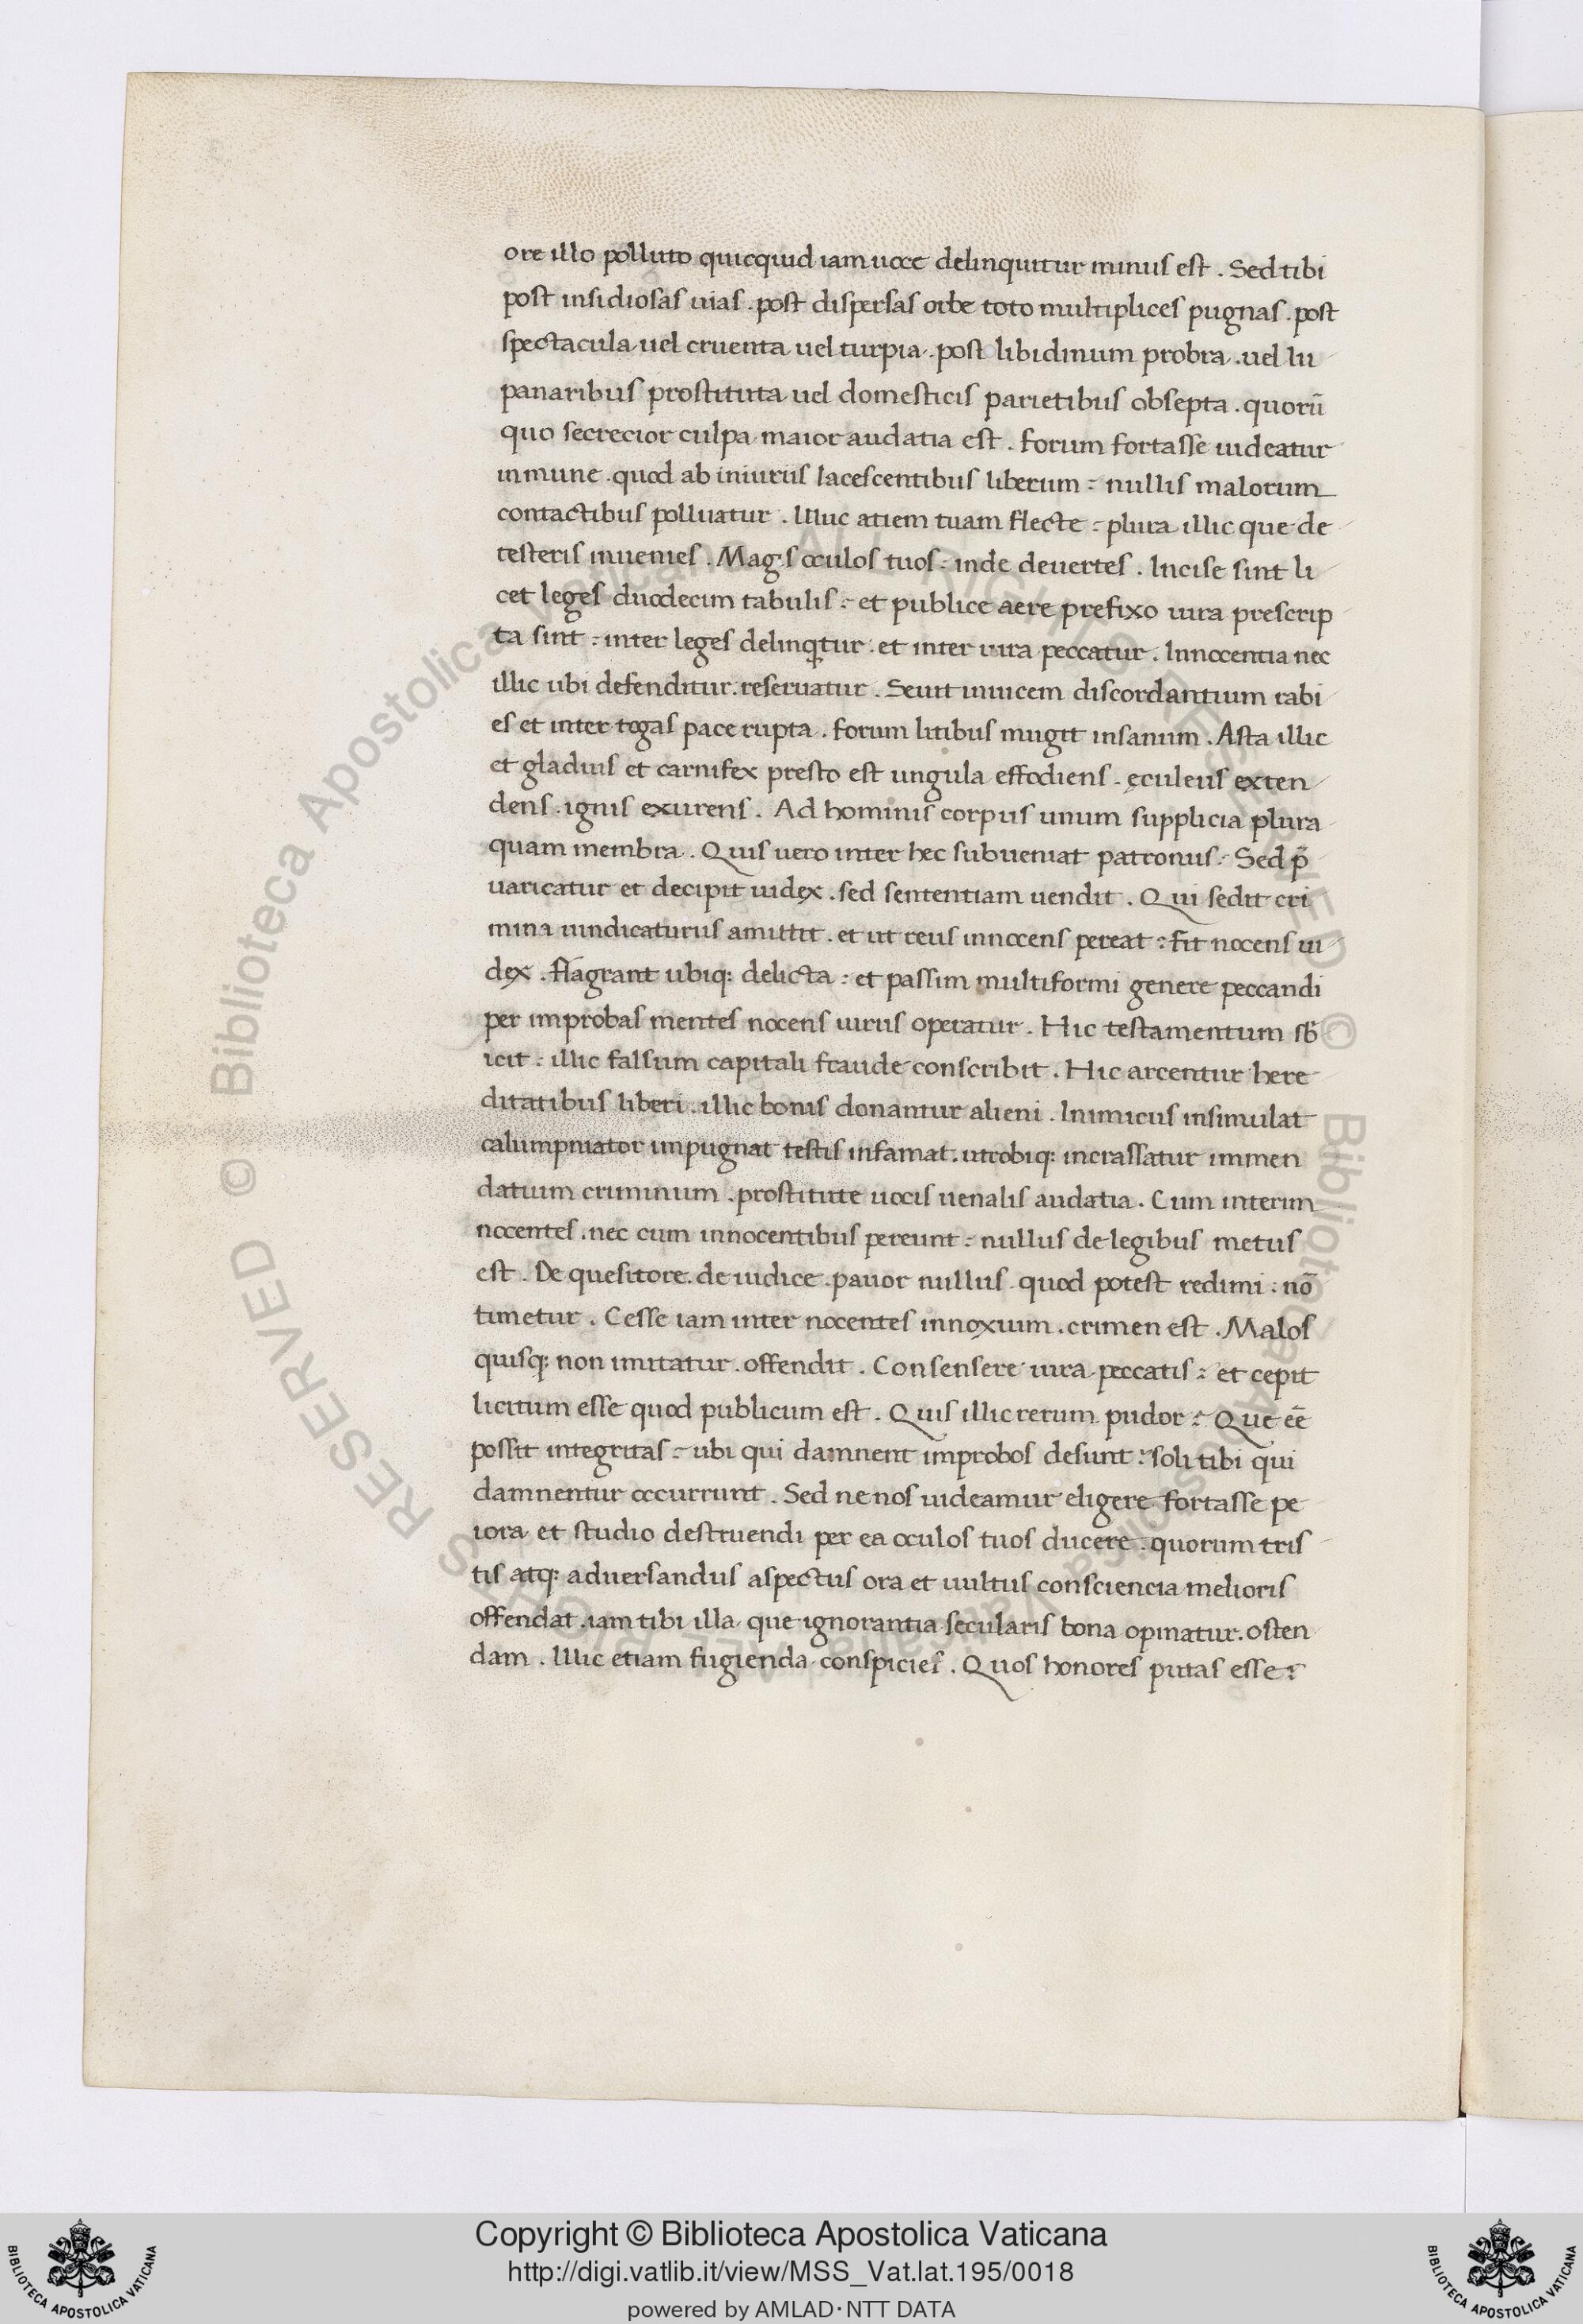 ore illo polluto quicquid iam uoce delinquitur minus est. Sed tibi
post insidiosas uias. post dispersas orbe toto multiplices pugnas. post
spectacula uel cruenta uel turpia. post libidinum probra. uel lu
panaribus prostituta uel domesticis parietibus obsepta. quorū
quo secrecior culpa maior audatia est. forum fortasse uideatur
inmune. quod ab iniuriis lacescentibus liberum: nullis malorum
contactibus polluatur. Illuc atiem tuam flecte: plura illic que de
testeris inuenies. Mag.s oculos tuos: inde deuertes. Incise sint li
cet leges duodecim tabulis: et publice aere prefixo iura prescrip
ta sint: inter leges delinqtur. et inter iura peccatur. Innocentia nec
illic ubi defenditur. reseruatur. Seuit inuicem discordantium rabi
es et inter togas pace rupta. forum litibus mugit insanum. Asta illic
et gladius et carnifex presto est ungula effodiens. ęculeus exten
dens. ignis exurens. Ad hominis corpus unum supplicia plura
quam membra. Quis uero inter hec subueniat patronus. Sed p̄
uaricatur et decipit iudex. sed sententiam uendit. Qui sedit cri
mina uindicaturus amittit. et ut reus innocens pereat: fit nocens iu
dex. flagrant ubiq: delicta: et passim multiformi genere peccandi
per improbas mentes nocens uirus operatur. Hic testamentum sb̄
icit: illic falsum capitali fraude conscribit. Hic arcentur here
ditatibus liberi. illic bonis donantur alieni. Inimicus insimulat
calumpniator impugnat testis infamat. utrobiq: incrassatur immen
datium criminum. prostitute uocis uenalis audatia. Cum interim
nocentes. nec cum innocentibus pereunt: nullus de legibus metus
est. De quesitore. de iudice. pauor nullus. quod potest redimi: nō
timetur. Cesse iam inter nocentes innoxium. crimen est. Malos
quisq: non imitatur. offendit. Consensere iura peccatis: et cepit
licitum esse quod publicum est. Quis illic rerum pudor: Que eē
possit integritas: ubi qui damnent improbos desunt: soli tibi qui
damnentur occurrunt. Sed ne nos uideamur eligere fortasse pe
iora et studio destruendi per ea oculos tuos ducere. quorum tris
tis atq: aduersandus aspectus ora et uultus consciencia melioris
offendat. iam tibi illa que ignorantia secularis bona opinatur. osten
dam. Illic etiam fugienda conspicies. Quos honores putas esse:
© Biblioteca Apostolica Vaticana ALL RIGHTS RESERVED
© Biblioteca Apostolica Vaticana ALL RIGHTS RESERVED
Copyright © Biblioteca Apostolica Vaticana
http://digi.vatlib.it/view/MSS_Vat.lat.195/0018
powered by AMLAD·NTT DATA
BIBLIOTECA APOSTOLICA VATICANA
BIBLIOTECA APOSTOLICA VATICANA